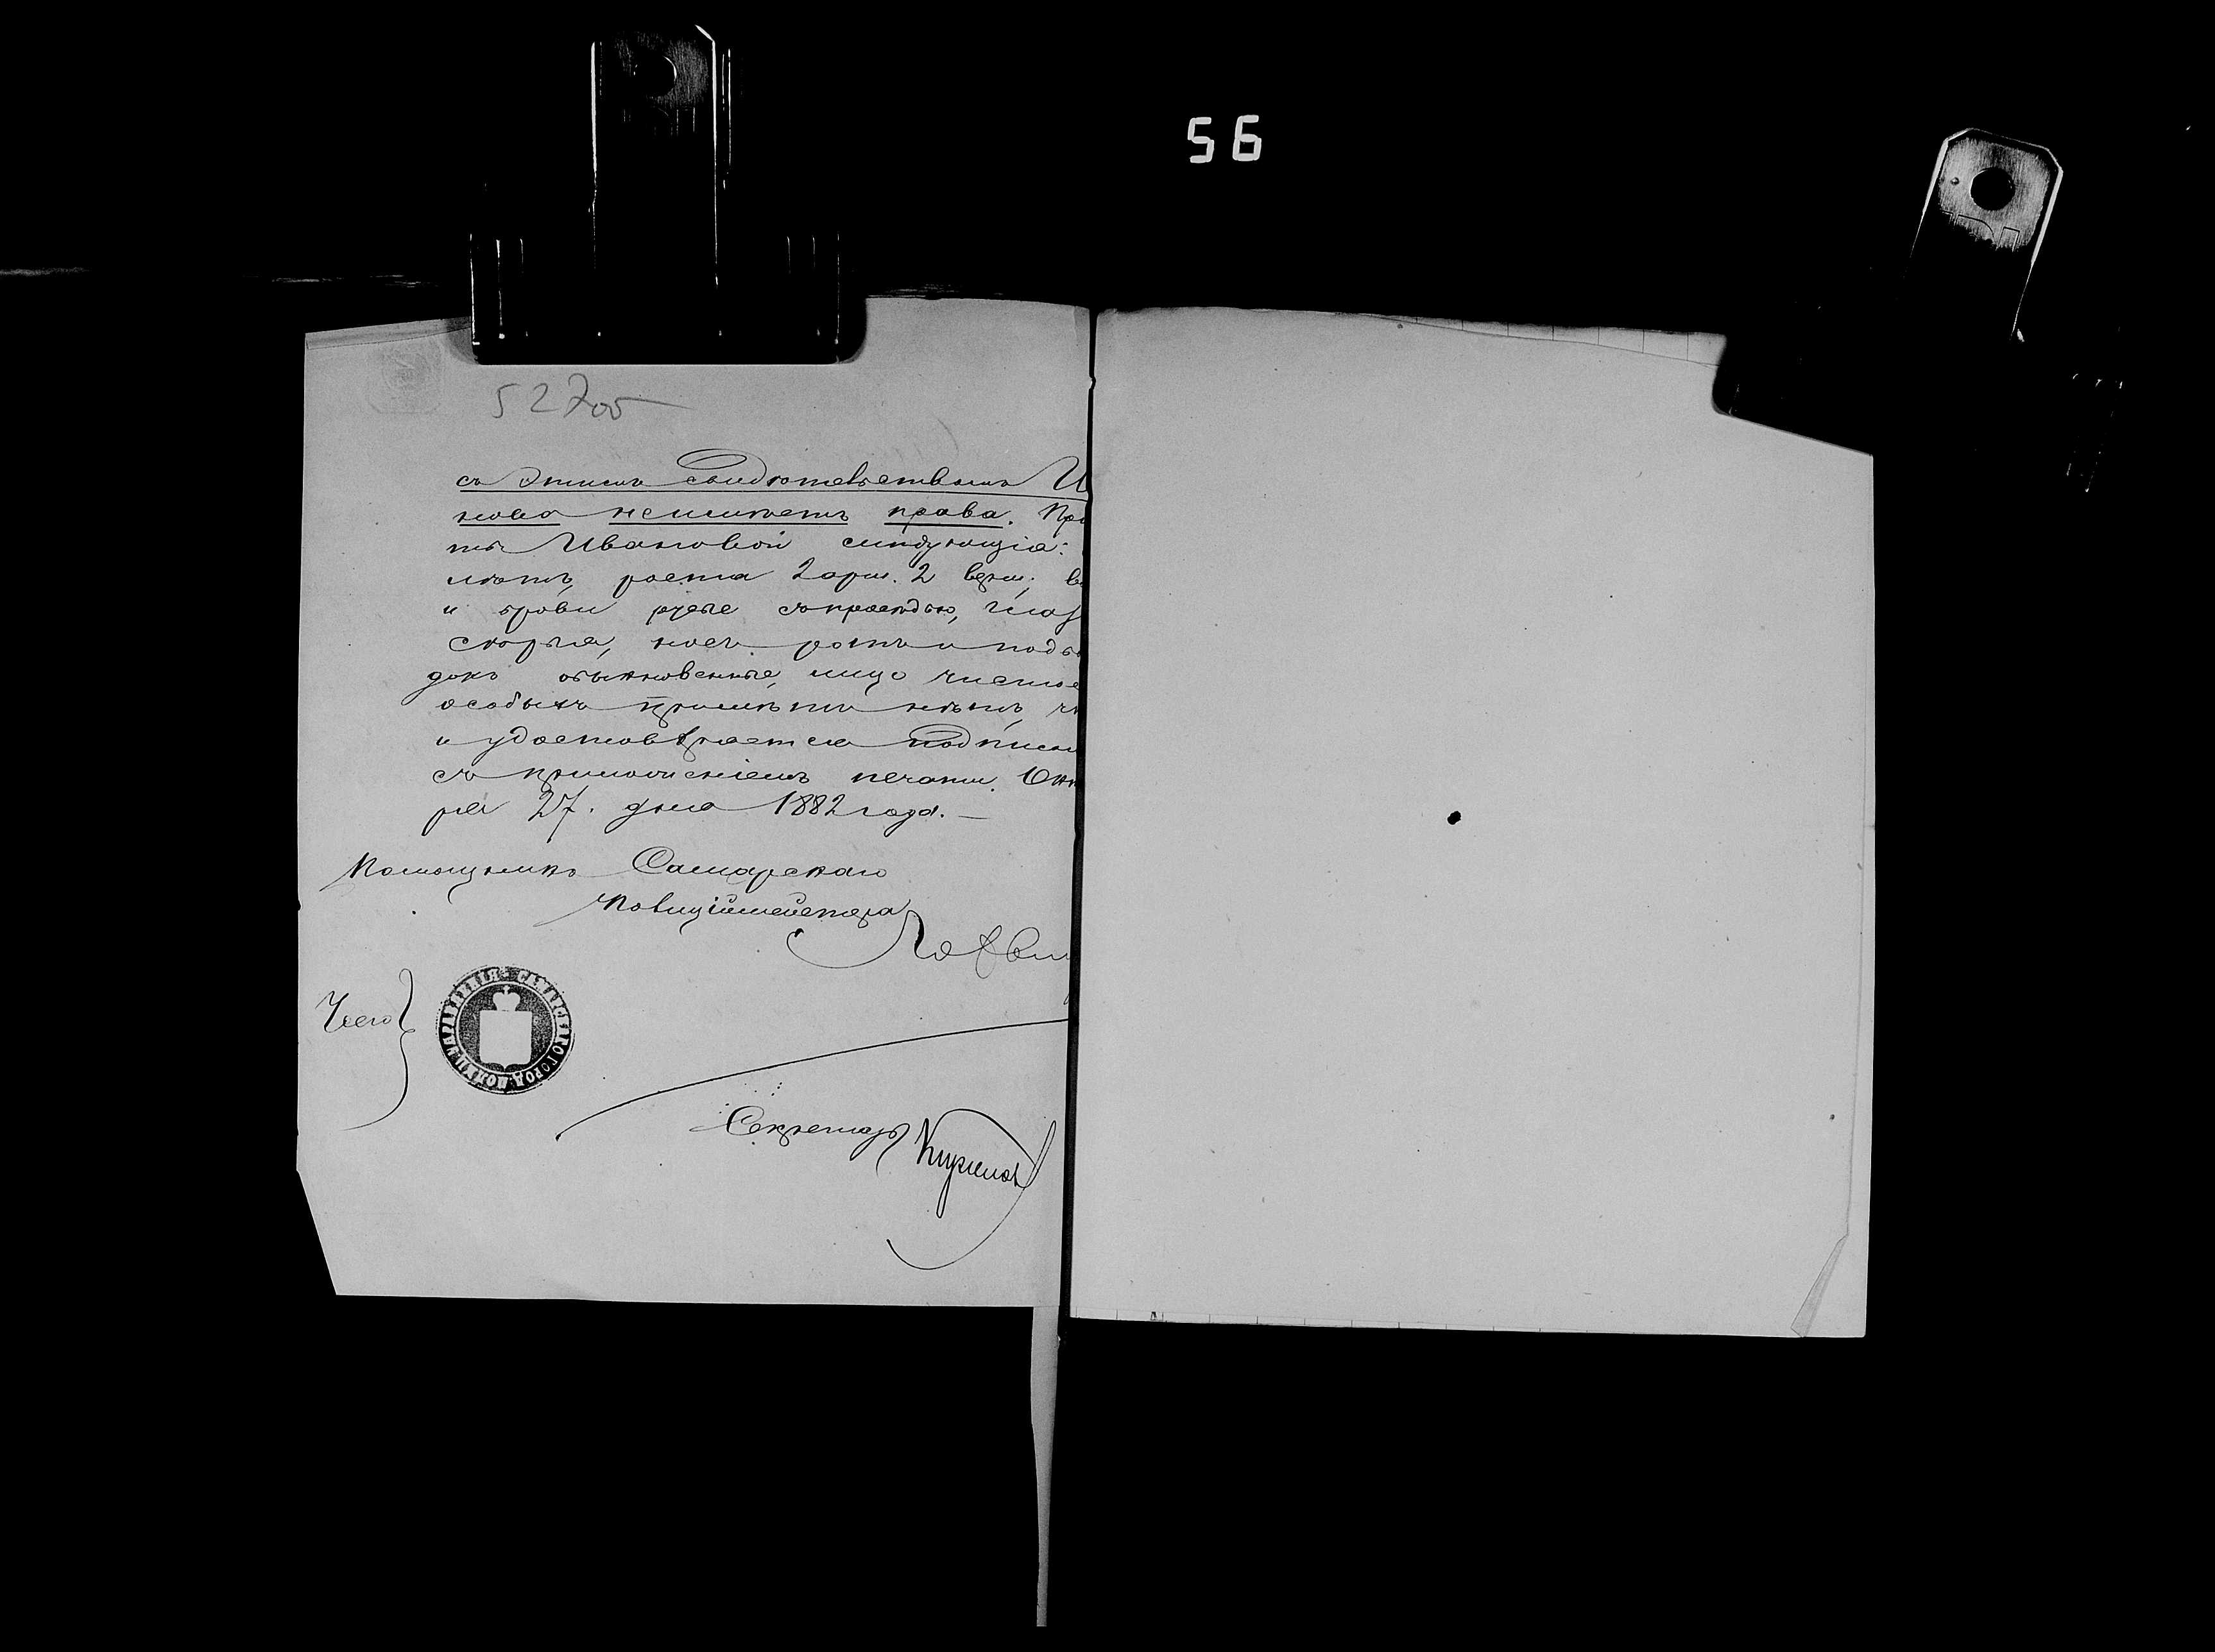 56
52700
съ этимъ свидѣтельствомъ И
нова неимѣетъ права. При
ты Ивановой слѣдующія:
лѣтъ, роста 2 арш. 2 верш; во
и брови русые съ просѣдью, глаз
скоріе, носъ ротъ и подбо
докъ обыкновенные, лицо чистое
особыхъ примѣтъ нѣтъ, чт
и удостовѣряется подписью
съ приложеніемъ печати. Октя
ря 27. дня 1882 года.
Помощникъ Самарскаго
Полиціймейстера
Секретарь